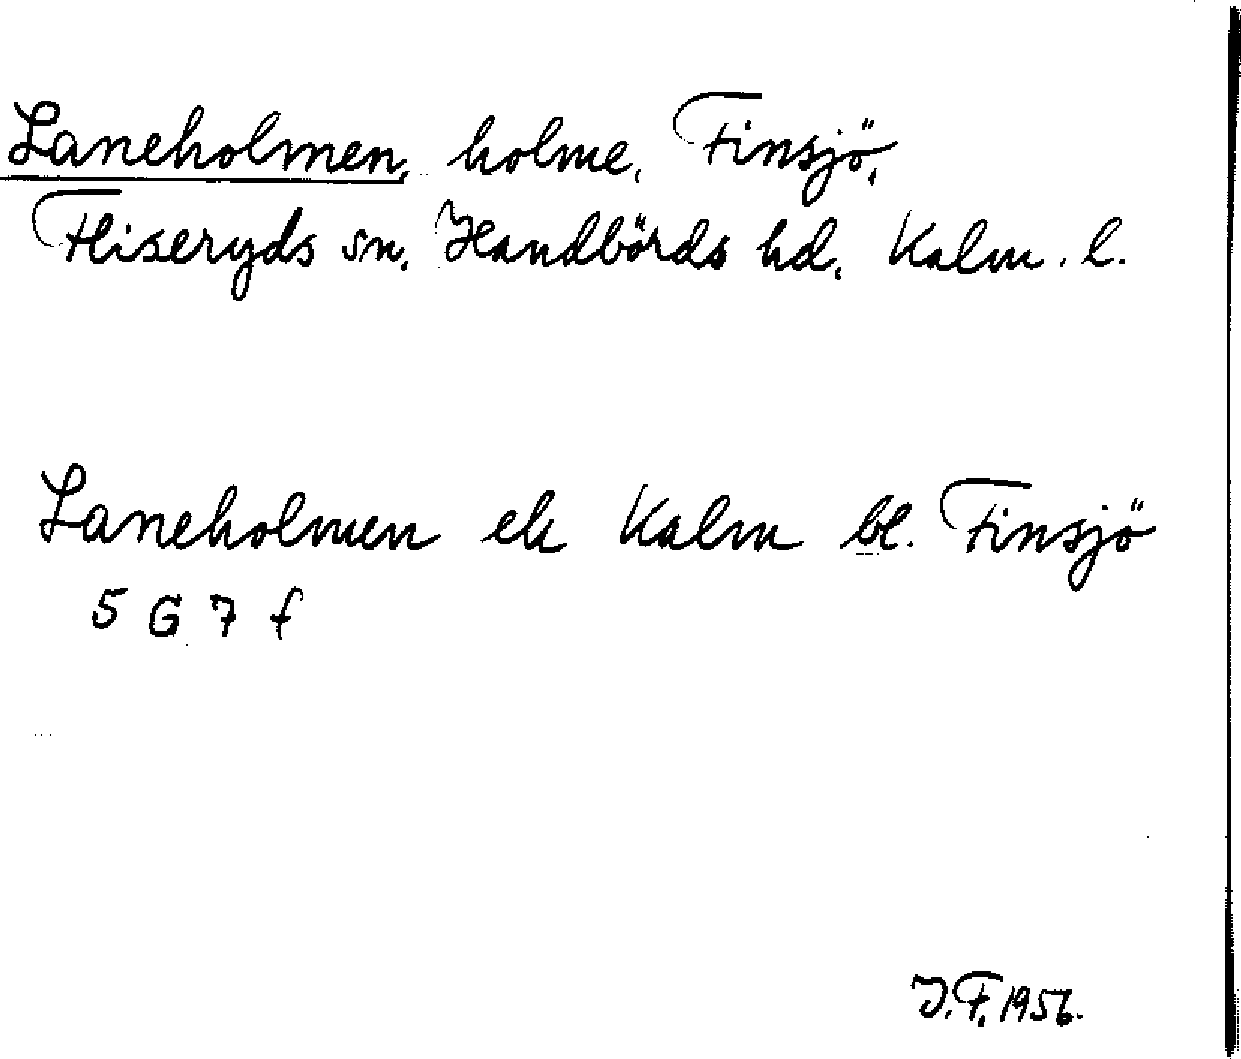 Laneholmen, holme, Finsjö,
Fliseryds sn, Handbörds hd, Kalm. l.
Laneholmen ek Kalm bl. Finsjö
5 G 7 f
J.F. 1956.